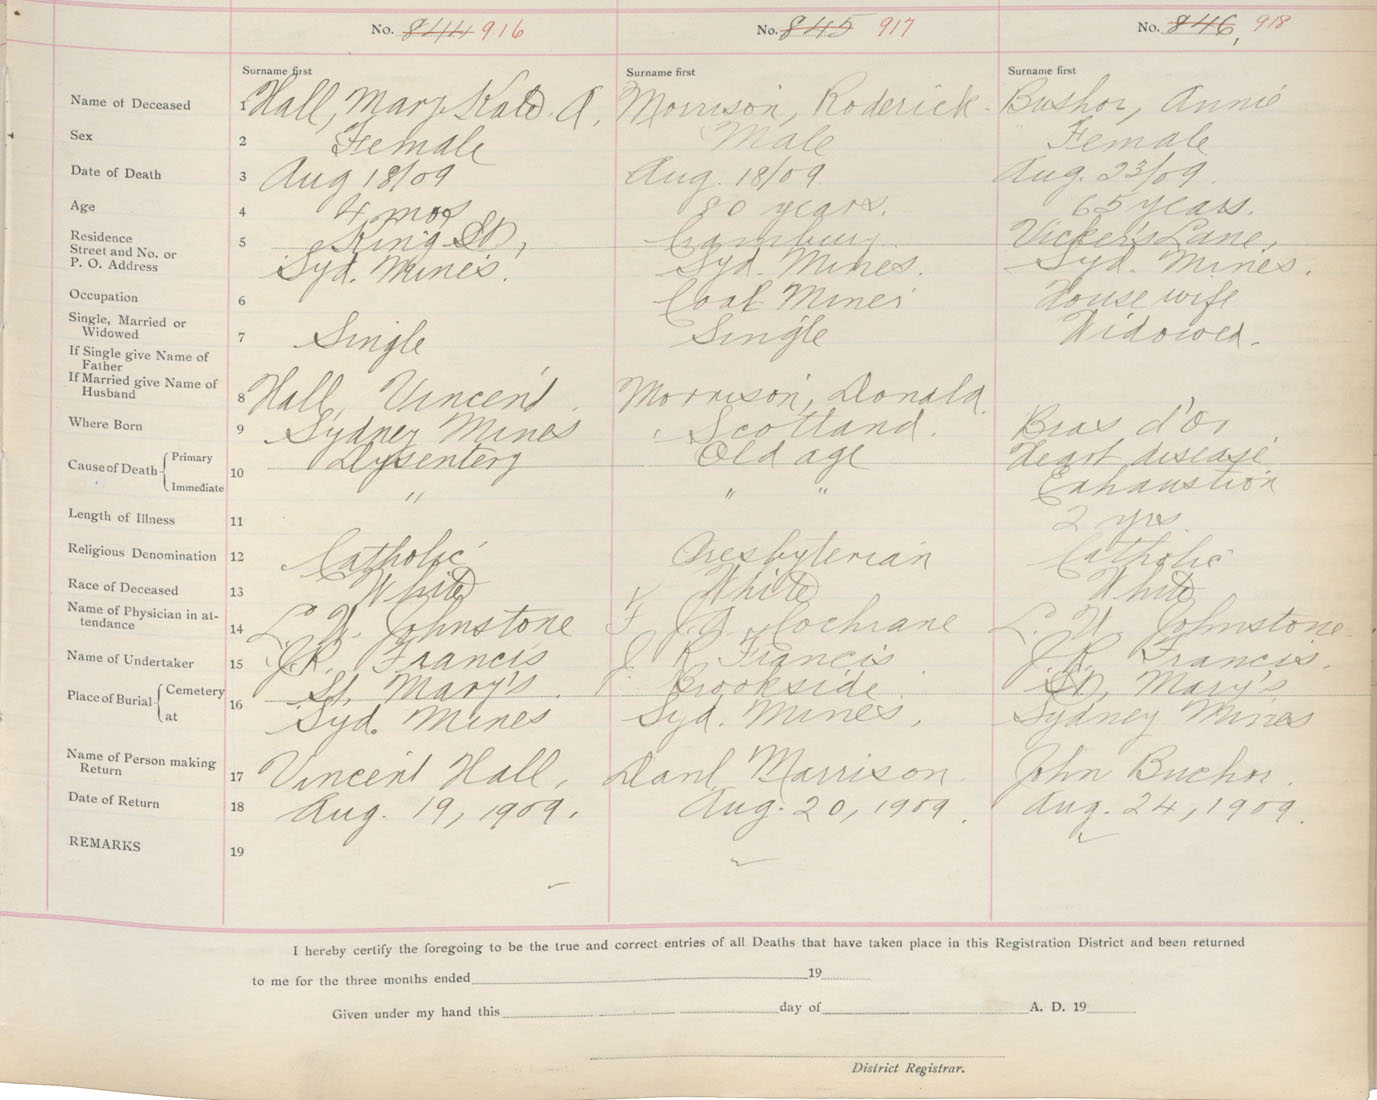 No. 844 916 No. 845 917 No. 846, 918
Surname first Surname first Surname first
Name of Deceased 1 Hall, Mary Kate A. Morrison, Roderick Bushor, Annie
Sex 2 Female Male Female
Date of Death 3 Aug 18/09 Aug. 18/09 Aug. 23/09.
Age 4 4 mos 80 years. 65 years.
Residence
Street and No. or
P. O. Address 5 King St, Vicker's Lane,
Syd. Mines. Syd. Mines. Syd. Mines.
Occupation 6 Coal Miner House wife
Single, Married or
Widowed 7 Single Single Widowed.
If Single give Name of
Father
If Married give Name of
Husband 8 Hall, Vincent. Morrison, Donald.
Where Born 9 Sydney Mines Scotland. Bras d'Or
Cause of Death Primary 10 Dysentery Old age Heart disease
Immediate " " " Exhaustion
Length of Illness 11 2 yrs.
Religious Denomination 12 Catholic Presbyterian Catholic
Race of Deceased 13 White White White
Name of Physician in at-
tendance 14 L. W. Johnstone Cochrane L. W. Johnstone
Name of Undertaker 15 J.R. Francis J R Francis J.R. Francis.
Place of Burial Cemetery 16 St. Mary's. Brookside. St. Mary's
at Syd. Mines Syd. Mines, Sydney Mines
Name of Person making
Return 17 Vincent Hall, Danl Marrison John Buchor.
Date of Return 18 Aug. 19, 1909. Aug. 20, 1909. Aug. 24, 1909.
REMARKS 19
I hereby certify the foregoing to be the true and correct entries of all Deaths that have taken place in this Registration District and been returned
to me for the three months ended 19
Given under my hand this day of A. D. 19
District Registrar.